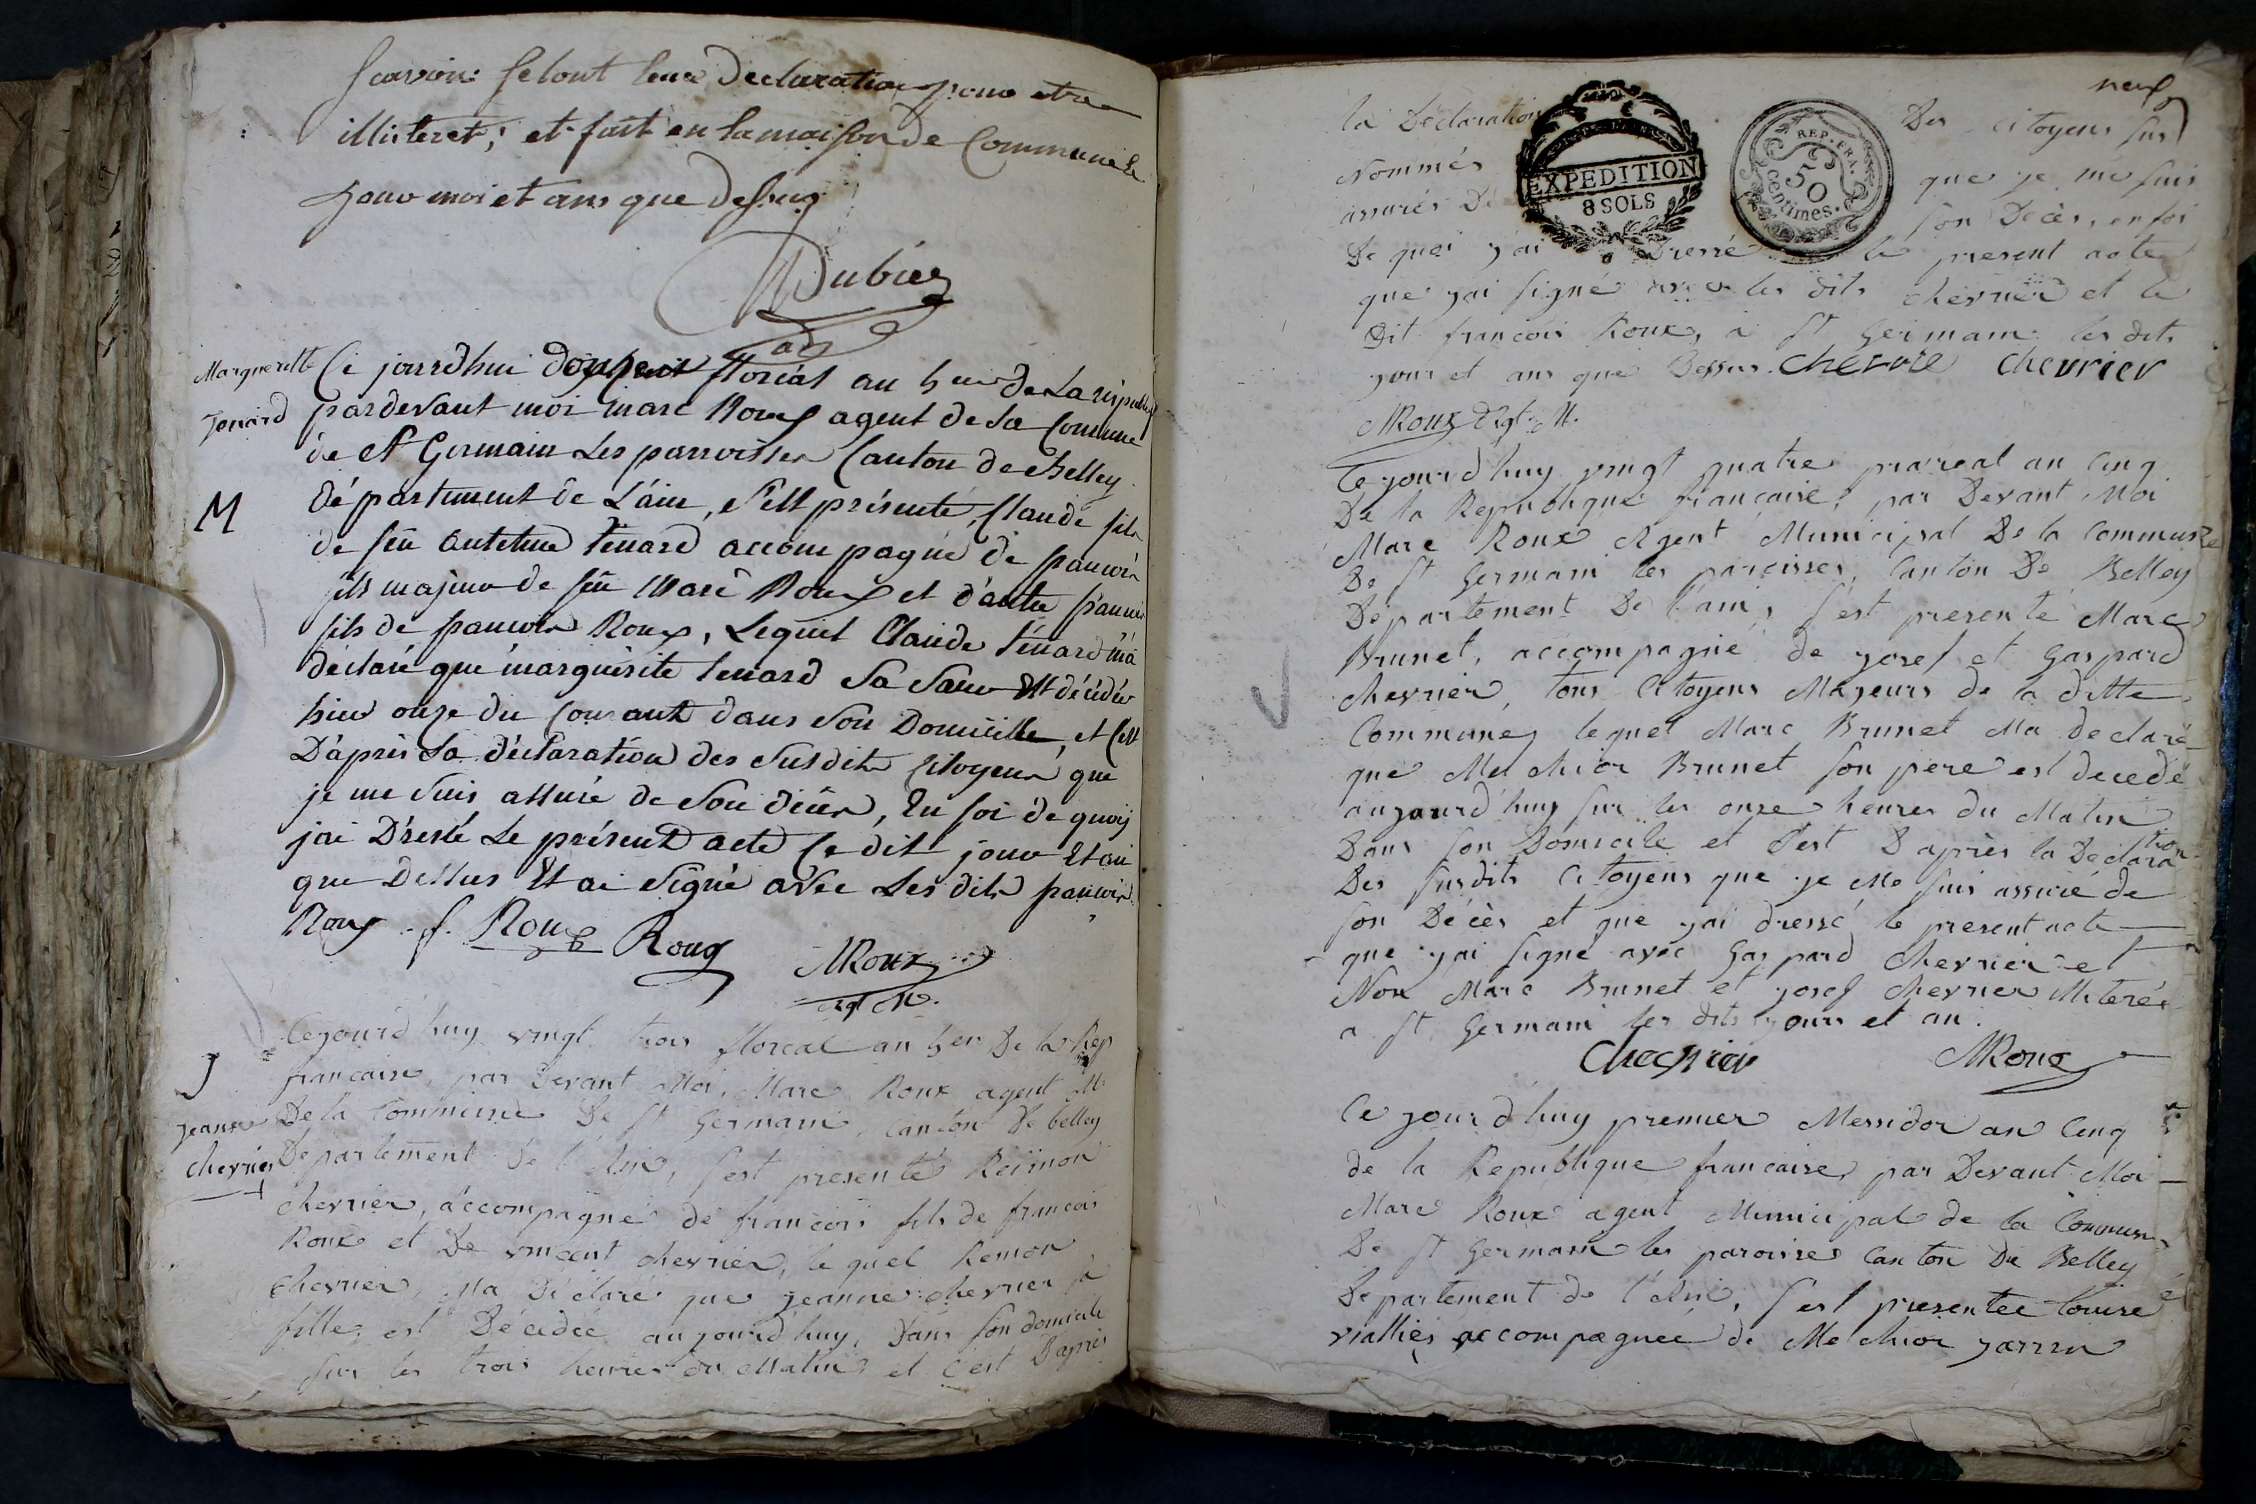 scavoire selont leur declaration pour etre
illisteret; et fait en la maison de Commune le
jour moi et ans que dessus
Dubiez
adj
Margueritte
Tenard
M
Ce jourdhui douze floréal an 5eme de la république
pardevant moi marc Roux agent de la Commune
de St Germain les parroisses Canton de Belley
département de L'áin, s'est présenté, Claude fils
de feû antelme Tenard accompagné de francois
fils majeur de feu Marc Roux et d'autre francois
fils de francois Roux, Lequel Claude Ténard m'a
déclaré que marguérite tenard Sa Sœur Est décédée
hier onze du Courant dans Son Domicille, et C'est
D'après La déclaration des Susdits Citoyens que
je me suis assuré de Son décès, En foi de quoij
j'ai Dressé Le présent acte Ce dit jour Et an
que Dessus Et ai Signé avec Les dits francois
Roux . f. Roux Roux MRoux
agt M.
J
jeanne
chevrier
Cejourd'huy vingt trois floréal an 5em De la Rep
francaise, par Devant Moi, Marc Roux agent M
De la Commune De St Germain, canton de belley
Departement de l'Ain, s'est presenté Reimon
chevrier, accompagné de francois fils de francois
Roux et De vincent chevrier, le quel Remon
chevrier, Ma Déclaré que jeanne chevrier sa
fille, est Décédée aujourd'huy, Dans son domicile
sur les trois heures du Matin, et c'est D'après
neuf
la Declaration Des citoyens sus
Nommés que je me suis
assurés De son Decès, en foi
De quoi j'ai Dressé le present acte
que j'ai signé avec les dits chevrier et le
Dit francois Roux, a St Germain les dits
jour et ans que Dessus. chevrie chevrier
MRoux Agt. M.
EXPEDITION
8 SOLS
REP. FRA.
50
centimes.
Ce jourd'huy vingt quatre prairéal an Cinq
De la Republique francaise, par Devant Moi
Marc Roux Agent Municipal De la Commune
De St Germain les paroisses, Canton De Belley
Département De l'ain, s'est presenté Marc
Brunet, accompagné de josef et Gaspard
chevrier, tous Citoyens Majeurs de la ditte
Commune, lequel Marc Brunet Ma declaré
que Melchior Brunet son pere est decedé
aujourd'huy sur les onze heures du Matin
Dans son Domicile et c'est D'après la Declaration
Des susdits Citoyens que je Me suis assuré de
son Décès et que j'ai dressé le present acte
que j'ai signé avec Gaspard chevrier et
Non Marc Brunet et josef chevrier illiterés
a St Germain les dits jours et an.
Chechrier MRoux
Ce jour d'huy premier Messidor an Cinq
de la Republique francaise, par Devant Moi
Marc Roux agent Municipal de la Commune
De St Germain les paroisses Canton De Belley
Departement de l'Ain, s'est presentée Louise
viallier accompagnée de Melchior jarrin